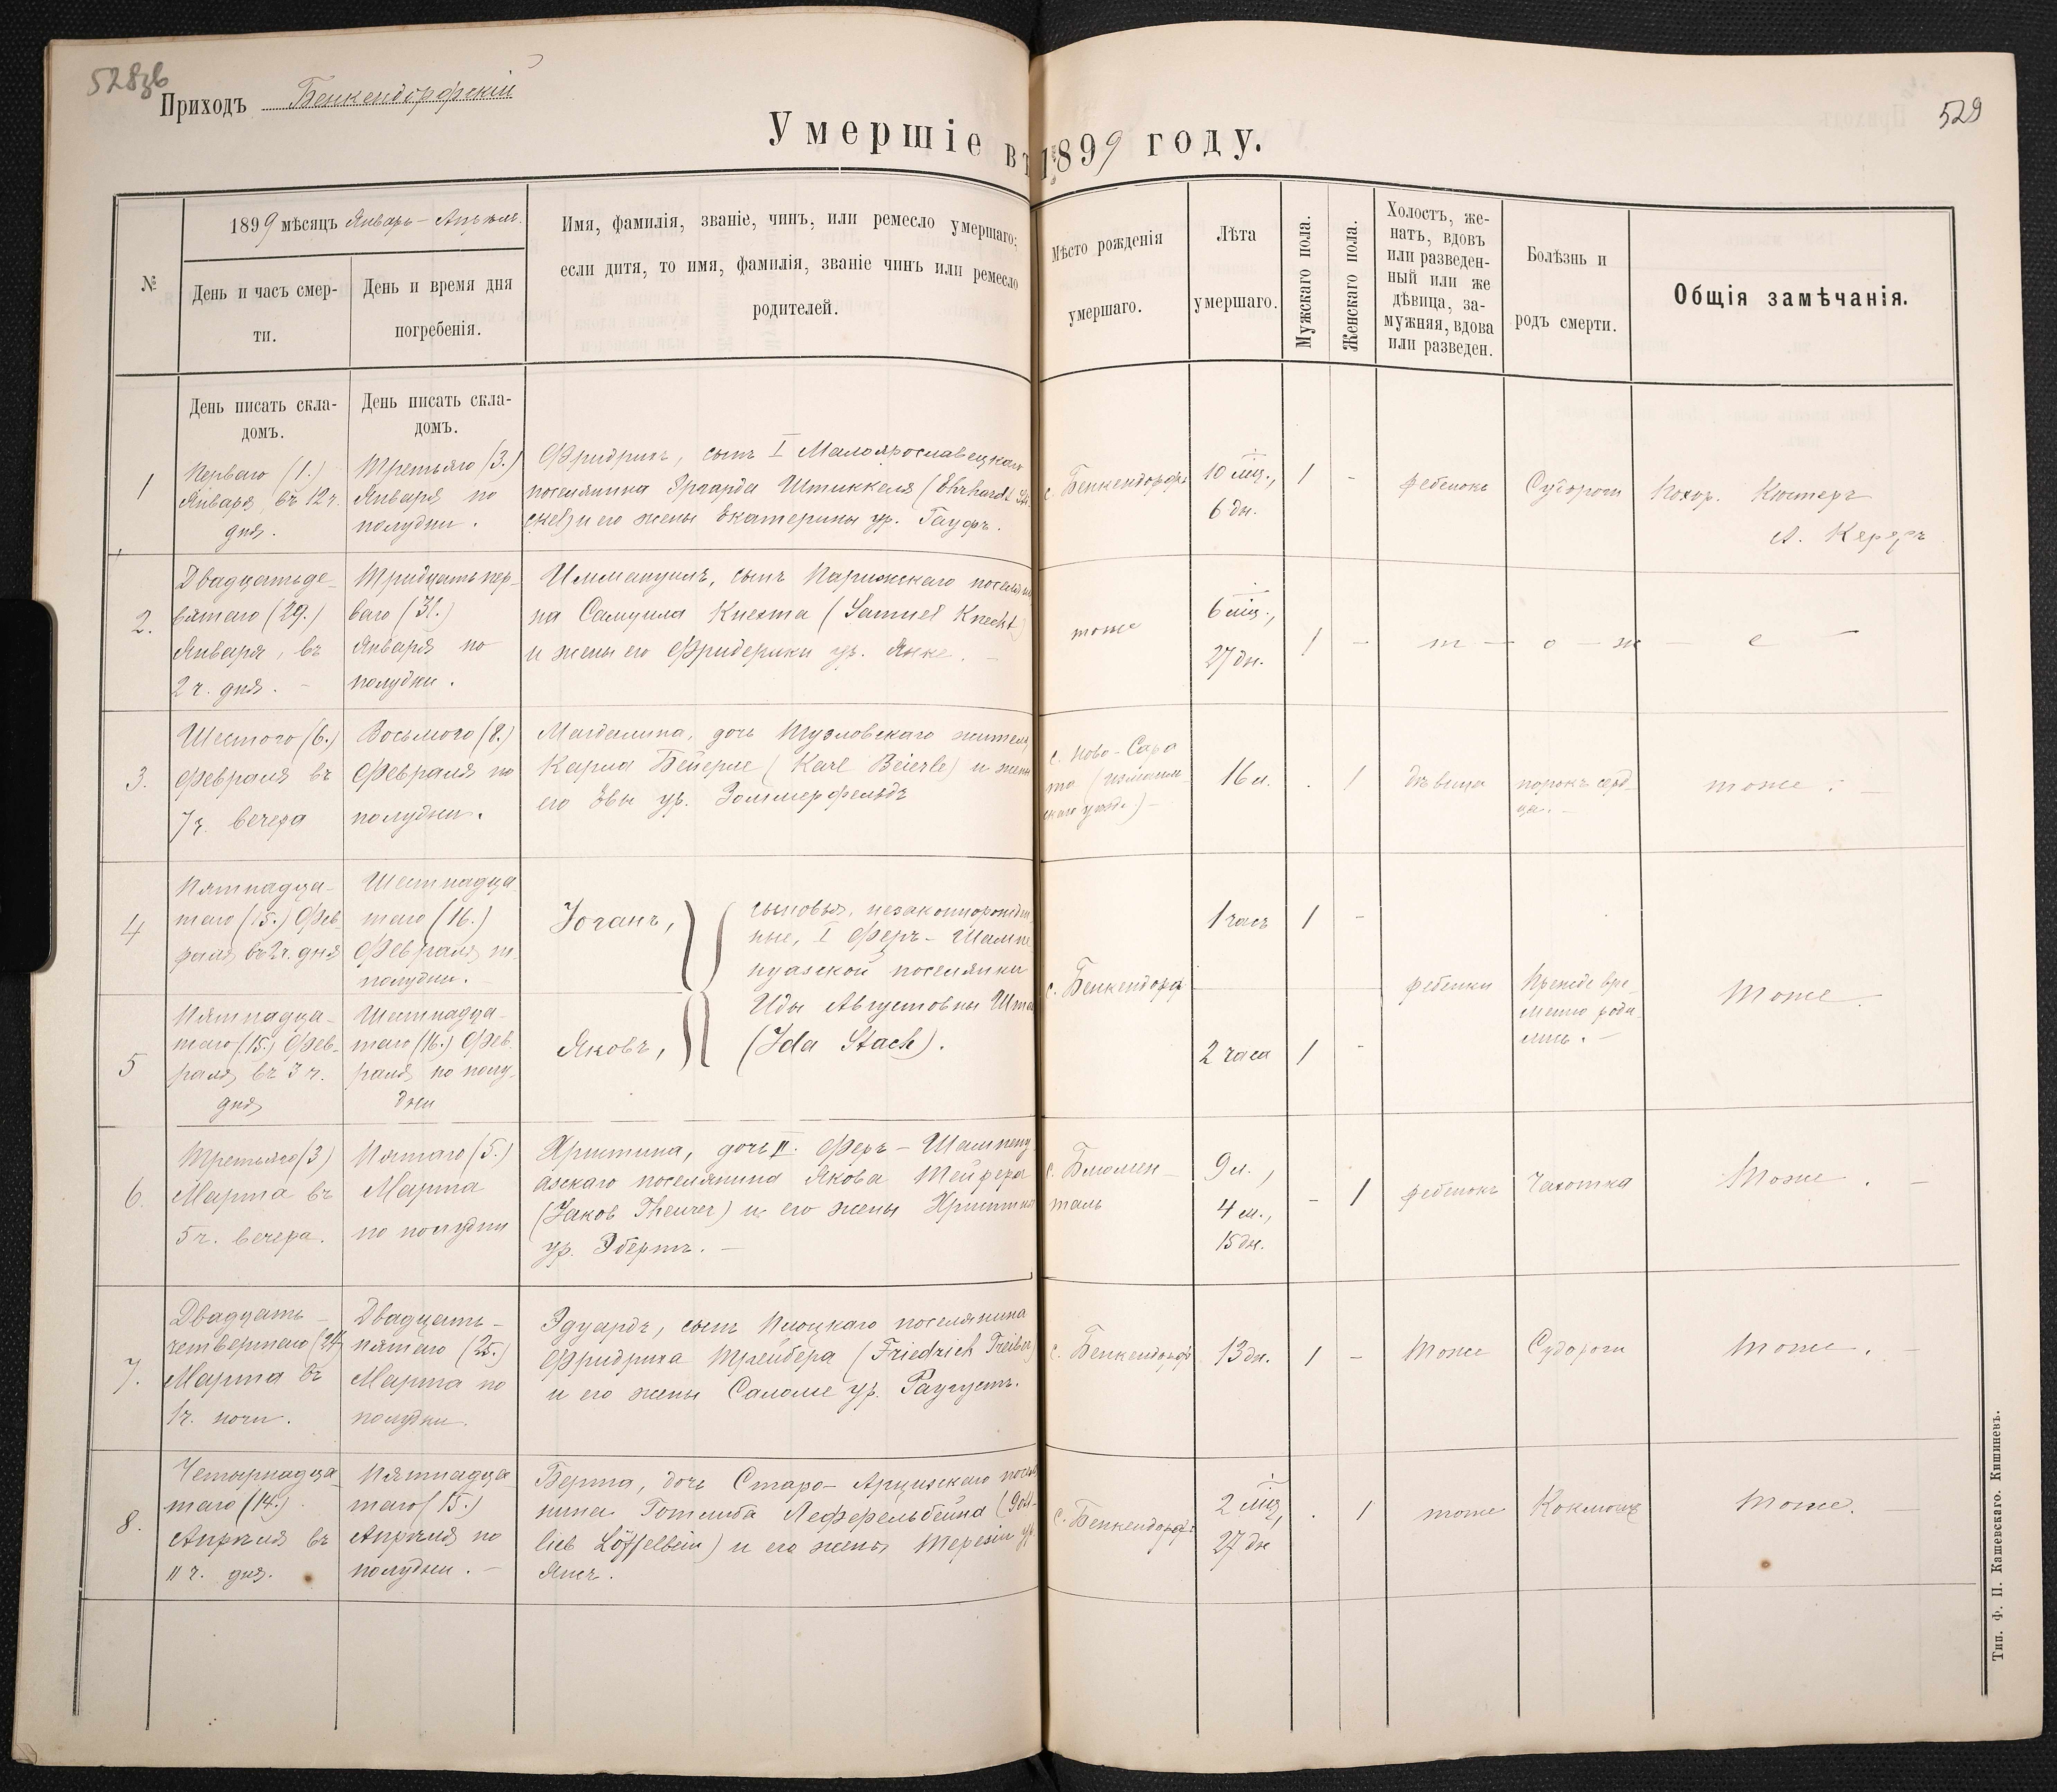 528об
Приходъ Бенкендорфскій
529
Умершіе въ 1899 году.
№
1899 мѣсяцъ Январь – Апрѣль.
День и часъ смер-
ти.
День и время дня
погребенія.
Имя, фамилія, званіе, чинъ, или ремесло умершаго;
если дитя, то имя, фамилія, званіе чинъ или ремесло
родителей.
Мѣсто рожденія
умершаго.
Лѣта
умершаго.
Мужскаго пола.
Женскаго пола.
Холостъ, же-
натъ, вдовъ
или разведен-
ный или же
дѣвица, за-
мужняя, вдова
или разведен.
Болѣзнь и
родъ смерти.
Общія замѣчанія.
День писать скла-
домъ.
День писать скла-
домъ.
1
Перваго (1.)
Января, въ 12 ч.
дня.
Третьяго (3.)
Января по
полудни.
Фридрихъ, сынъ I Малоярославецкаго
поселянина Эргарда Штиккеля (Ehrhardt
и его жены Екатерины ур. Гауфъ.
с. Бенкендорфъ
10 мц.,
6 дн.
1
-
ребенокъ
Судороги
Похор. Кюстеръ
А. Кереръ
2.
Двадцатьде-
вятаго (29.)
Января, въ
2 ч. дня. –
Тридцатьпер-
ваго (31.)
Января по
полудни.
Иммануилъ, сынъ Парижскаго поселяни
на Самуила Кнехта (Samuel Knecht)
и жены его Фридерики ур. Янке. –
тоже
6 мц.,
27 дн.
1
-
т – о – ж е –
3.
Шестого (6.)
Февраля въ
7 ч. вечера
Восьмого (8.)
Февраля по
полудни.
Магдалина, дочь Тузловскаго жителя
Карла Бейерле (Karl Beierle) и жены
его Евы ур. Золмерфельдъ
с. Ново-Сара
та (Измаиль
скаго уезд.) –
16 л.
.
1
дѣвица
порокъ серд-
ца. –
тоже. –
4
Пятнадца-
таго (15.) Фев-
раля въ 2 ч. дня
Шестнадца
таго (16.)
Февраля по
полудни.
Іоганъ,
сыновья, незаконнорожден-
ные, I Феръ-Шампе
нуазской поселянки
Иды Августовны Шта
(Ida Stach).
с. Бенкендорфъ
1 часъ
1
-
ребенки
Прежде вре-
менно роди-
лись. –
Тоже.
5
Пятнадца-
таго (15.) Фев-
раля въ 3 ч.
дня
Шестнадца-
таго (16.) Фев.
раля по полу-
дни
Яковъ,
2 часа
1
-
6.
Третьяго (3)
Марта въ
5 ч. вечера.
Пятаго (5.)
Марта
по полудни
Христина, дочь II. Феръ-Шампену
азскаго поселянина Якова Тейрера
(Jakob Theurer) и его жены Христины
ур. Эбертъ. –
с. Блюмен-
таль
9 л.,
4 м.,
15 дн.
-
1
ребенокъ
Чахотка
Тоже. –
7.
Двадцать-
четвертаго (24)
Марта въ
1 ч. ночи.
Двадцать-
пятаго (25.)
Марта по
полудни.
Эдуардъ, сынъ Плоцкаго поселянина
Фридриха Трейбера (Friedrich Treiber)
и его жены Саломе ур. Раугустъ.
с. Бенкендорфъ
13 дн.
1
-
Тоже
Судороги
Тоже. –
8.
Четырнадца
таго (14.)
Апрѣля въ
11 ч. дня.
Пятнадца-
таго (15.)
Апрѣля по
полудни. –
Берта, дочь Старо-Арцизскаго поселя
нина Готлиба Леффельбейна (Gott-
lieb Löffelbein) и его жены Терезіи ур.
Янъ.
с. Бенкендорфъ
2 мц.,
27 дн
.
1
тоже
Коклюшъ
Тоже. –
Тип. Ф. П. Кашевскаго. Кишиневъ.